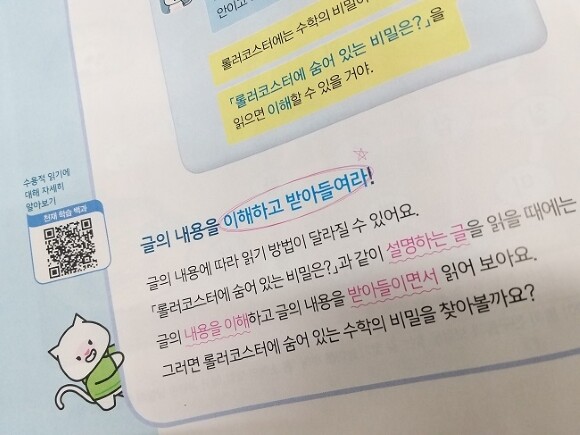 안이고
롤러코스터에는 수학의 비밀이
「롤러코스터에 숨어 있는 비밀은?」을
읽으면 이해할 수 있을 거야.
수용적 읽기에
대해 자세히
알아보기
천재 학습 백과
글의 내용을 이해하고 받아들여라!
글의 내용에 따라 읽기 방법이 달라질 수 있어요.
「롤러코스터에 숨어 있는 비밀은?」과 같이 설명하는 글을 읽을 때에는
글의 내용을 이해하고 글의 내용을 받아들이면서 읽어 보아요.
그러면 롤러코스터에 숨어 있는 수학의 비밀을 찾아볼까요?